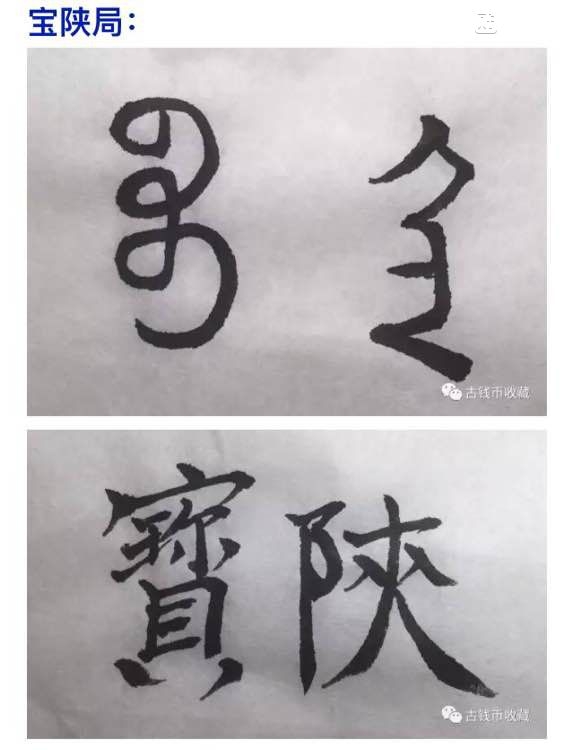 宝陕局：
ᠪᠣᠣ
古钱币收藏
寶陝
古钱币收藏